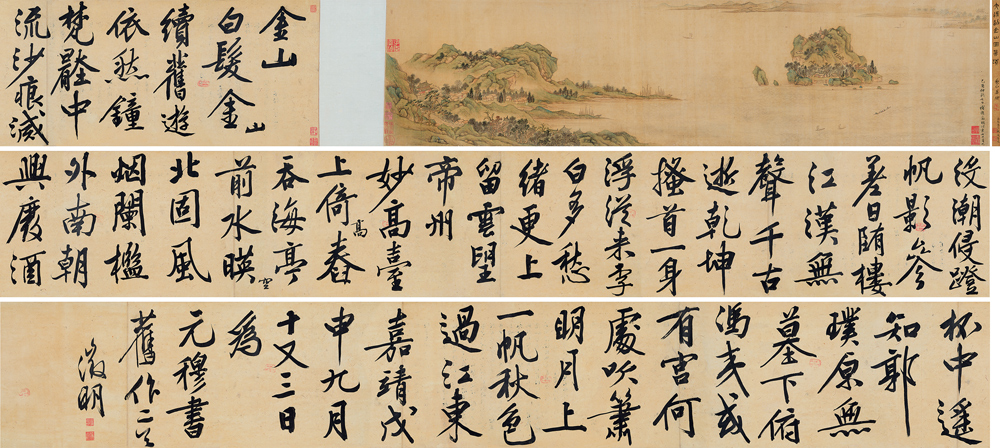 金山
白髮金山
續舊遊
依然鐘
梵壓中
流沙痕滅
没潮侵蹬
帆影參
差日陏樓
江漢無
聲千古
逝乾坤
搔首一身
浮從来李
白多愁
緒更上
留雲望
帝州
妙高臺
上倚高舂
吞海亭
前水暎空
北固風
烟闌檻
外南朝
興廢酒
杯中遥
知郭
璞原無
墓下俯
馮夷或
有宫何
處吹簫
明月上
一帆秋色
過江東
嘉靖戊
申九月
十又三日
為
元穆書
舊作二首
徵明